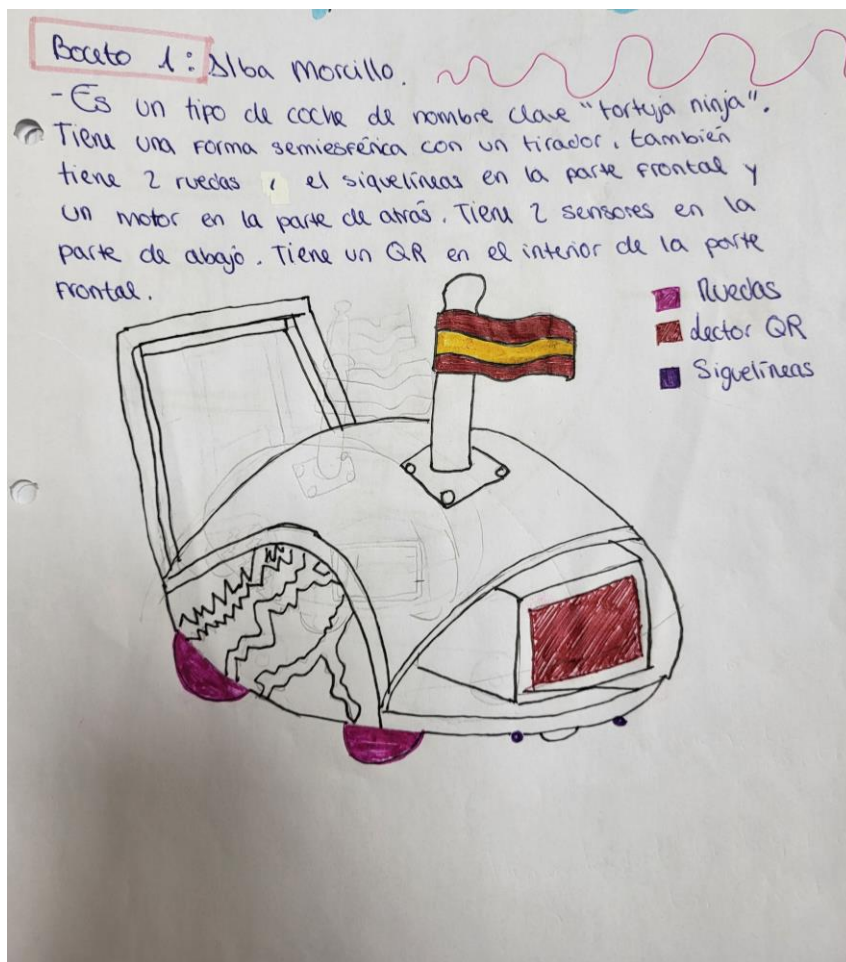 Boceto 1: Alba Morcillo.
- Es un tipo de coche de nombre clave "tortuja ninja".
Tiene una forma semiesférica con un tirador, también
tiene 2 ruedas, el siguelíneas en la parte frontal y
un motor en la parte de atrás. Tiene 2 sensores en la
parte de abajo. Tiene un QR en el interior de la parte
frontal.
Ruedas
lector QR
Siguelíneas